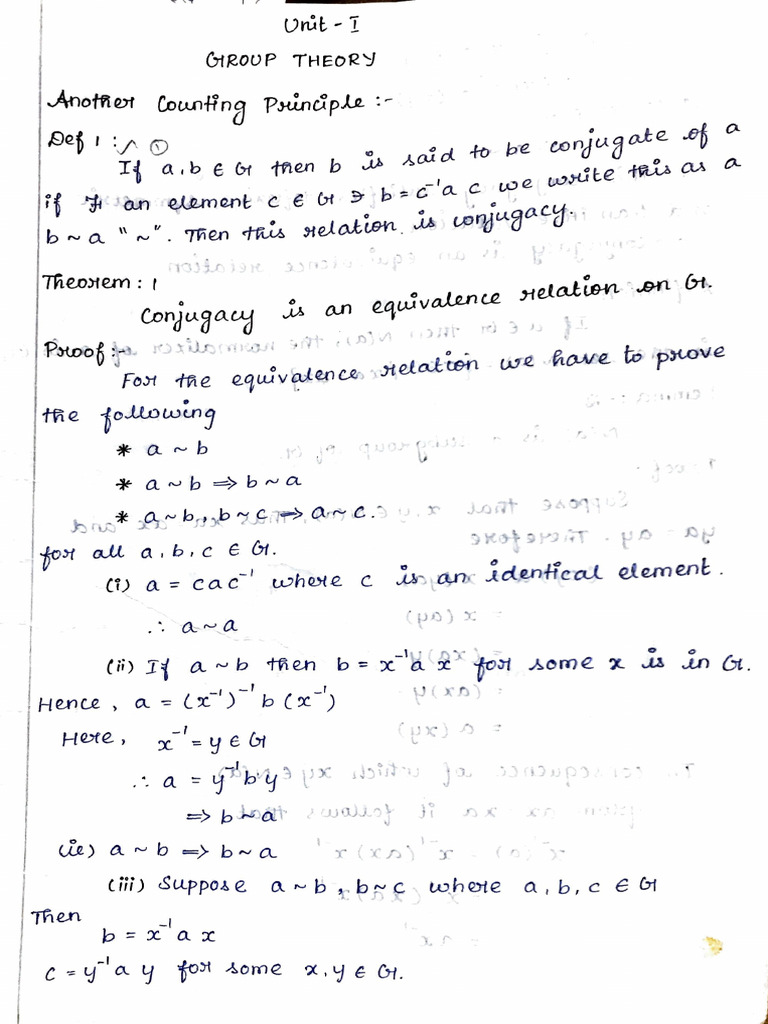 Unit - I
GROUP THEORY
Another Counting Principle :-
Def 1 : ①
If a, b ∈ G then b is said to be conjugate of a
if ∃ an element c ∈ G ∋ b = c⁻¹ a c we write this as a
b ~ a "~". Then this relation is conjugacy.
Theorem : 1
Conjugacy is an equivalence relation on G.
Proof :-
For the equivalence relation we have to prove
the following
* a ~ b
* a ~ b ⇒ b ~ a
* a ~ b, b ~ c ⇒ a ~ c.
for all a, b, c ∈ G.
(i) a = cac⁻¹ where c is an identical element.
∴ a ~ a
(ii) If a ~ b then b = x⁻¹ a x for some x is in G.
Hence, a = (x⁻¹)⁻¹ b (x⁻¹)
Here, x⁻¹ = y ∈ G
∴ a = y⁻¹ b y
⇒ b ~ a
(ie) a ~ b ⇒ b ~ a
(iii) Suppose a ~ b, b ~ c where a, b, c ∈ G
Then
b = x⁻¹ a x
c = y⁻¹ a y for some x, y ∈ G.